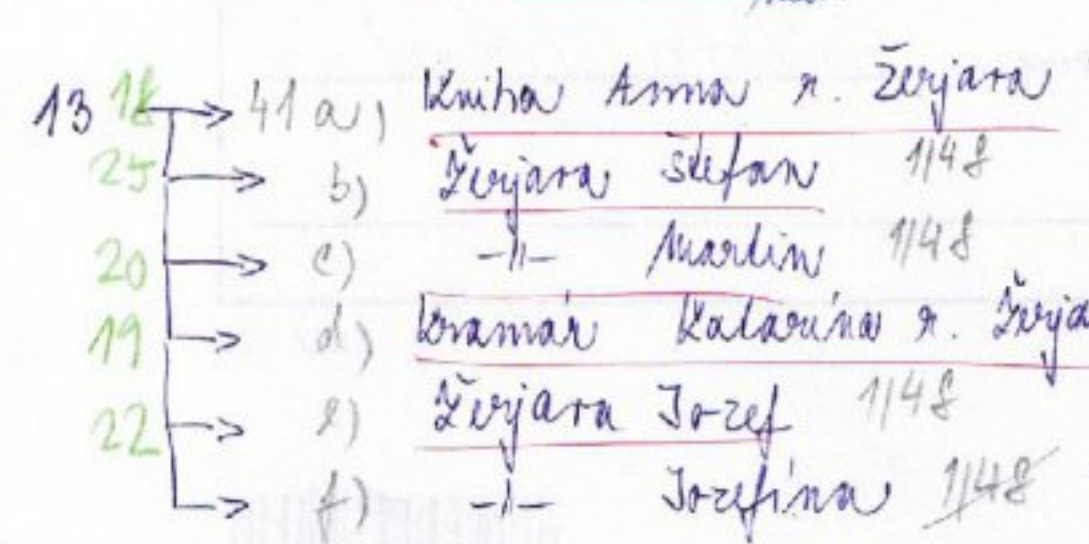 13 18 → 41 a) Kniha Anna r. Žerjava
25 → b) Žerjava Štefan 1/48
20 → c) -||- Martin 1/48
19 → d) Kramár Katarína r. Žerja
22 → e) Žerjava Jozef 1/48
→ f) -||- Jozefína 1/48